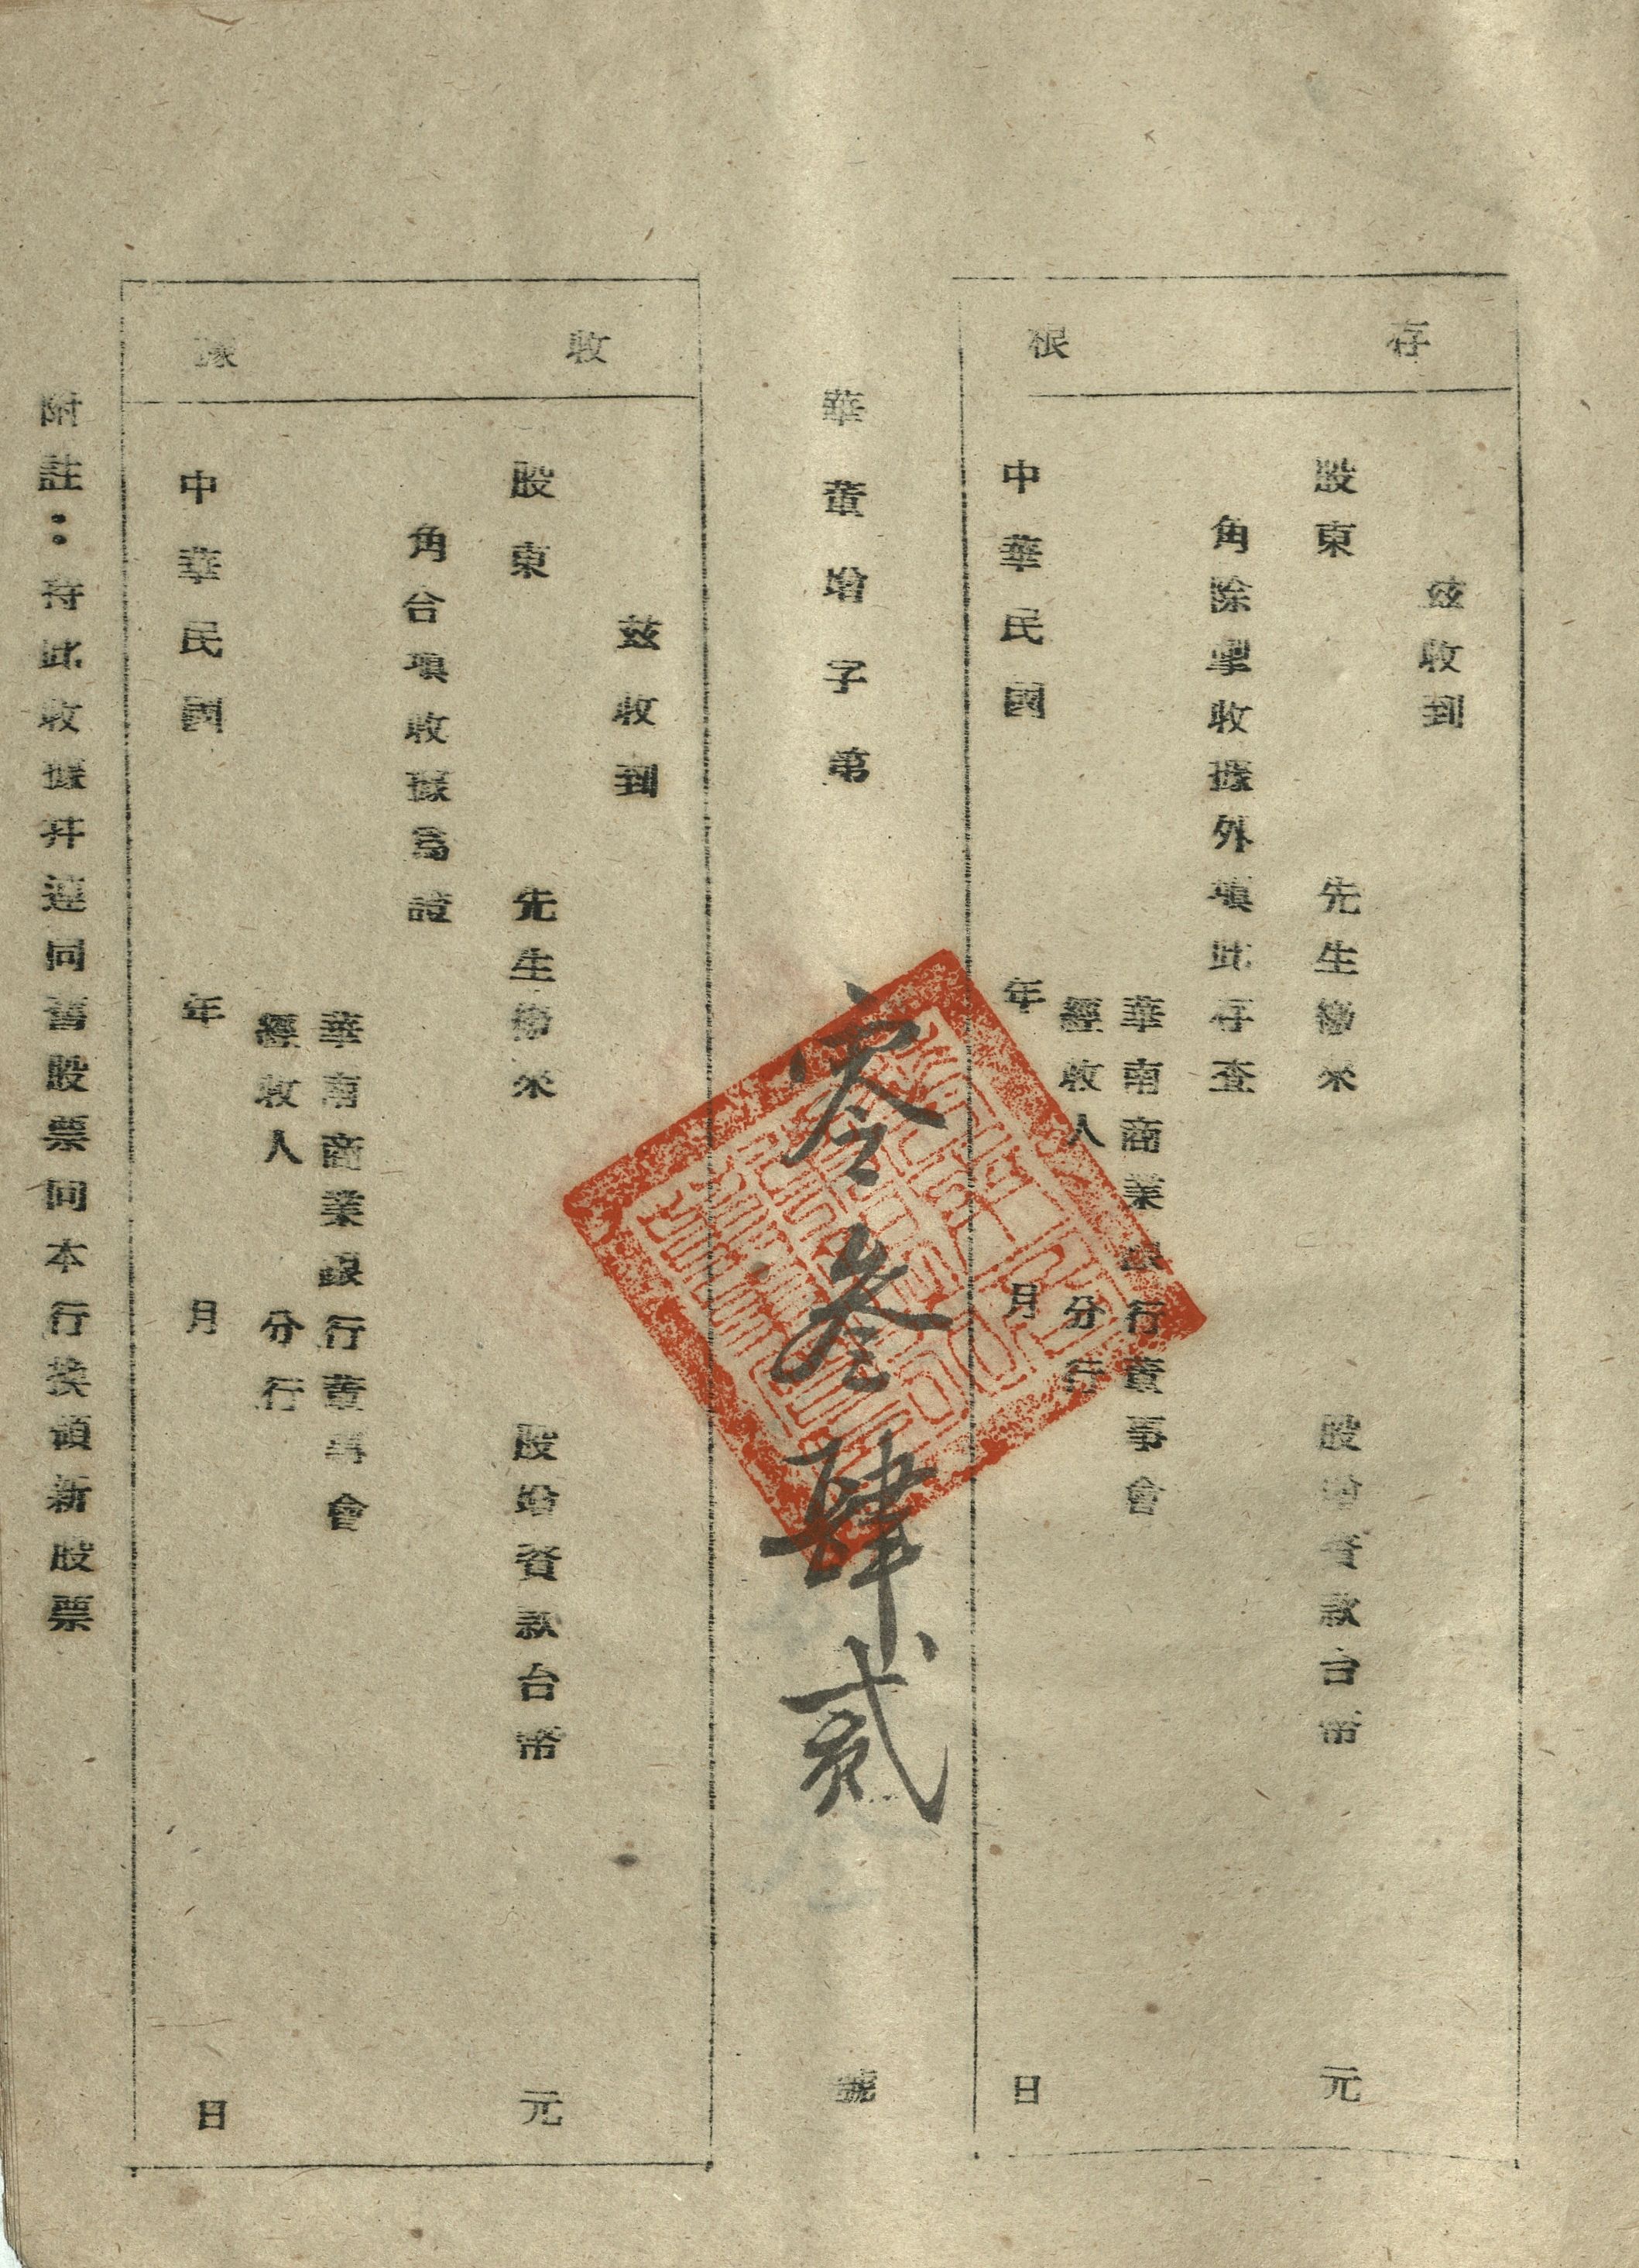 存根
茲收到
股東 先生繳來 股增資款台幣 元
角除掣收據外填此存查
華南商業銀行董事會
經收人 分行
中華民國 年 月 日
華董增字第 零叁肆貳 號
收據
茲收到
股東 先生繳來 股增資款台幣 元
角合填收據為證
華南商業銀行董事會
經收人 分行
中華民國 年 月 日
附註：持此收據并連同舊股票向本行換領新股票